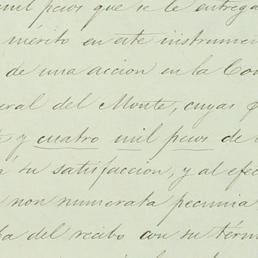 mil pesos que se le entrega
mérito en este instrumen
de una accion en la Co
eral del Monte, cuyas
y cuatro mil pesos de
á su satisfaccion, y al efec
non numerata pecunia
del recibo con su térm